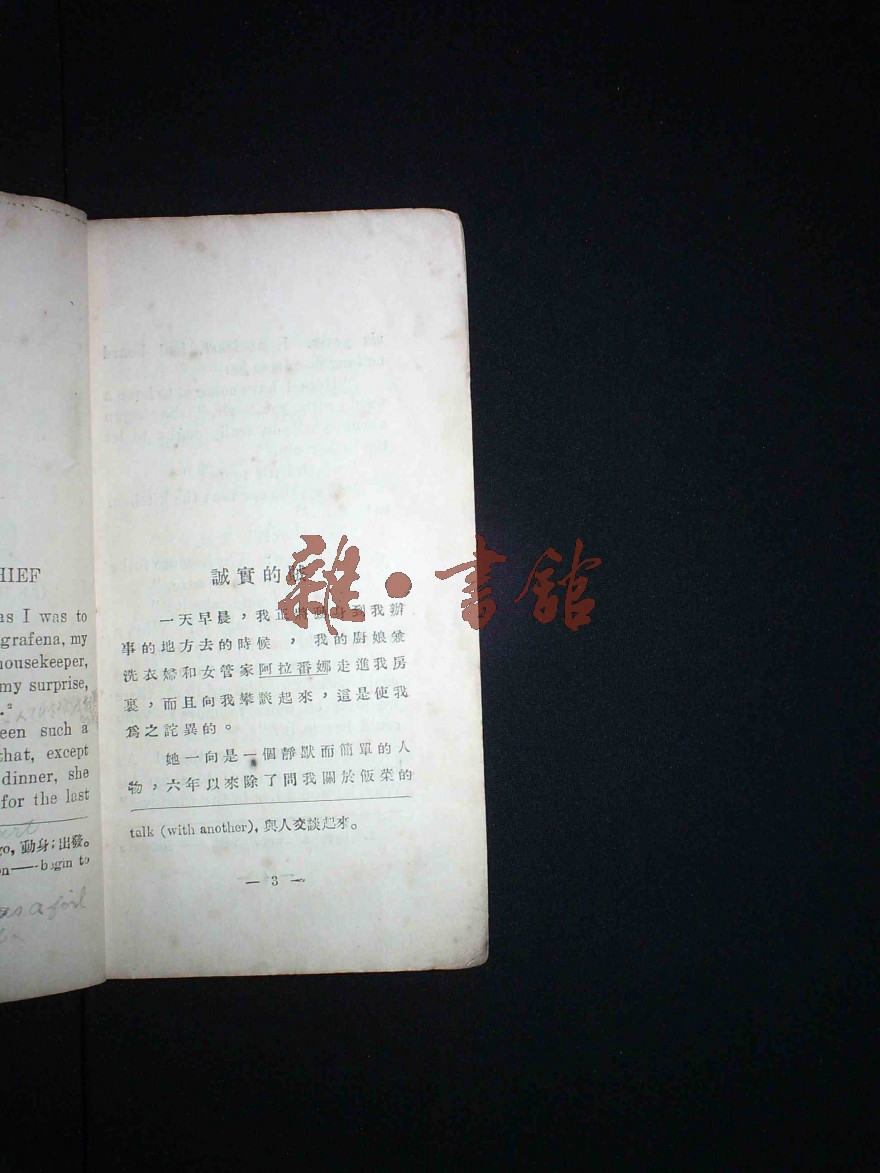 HIEF
as I was to
grafena, my
housekeeper,
my surprise,
.²
een such a
that, except
dinner, she
for the last
go, 動身;出發。
on——begin to
as a foil
誠實的賊
一天早晨，我正將動身到我辦
事的地方去的時候，我的廚娘兼
洗衣婦和女管家阿拉番娜走進我房
裏，而且向我攀談起來，這是使我
爲之詫異的。
她一向是一個靜默而簡單的人
物，六年以來除了問我關於飯菜的
talk (with another), 與人交談起來。
— 3 —
雜·書館